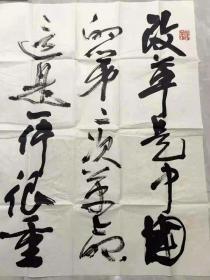 改革是中国
的第二次革命
这是一件很重